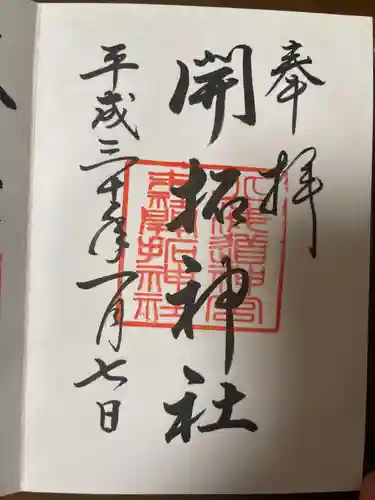 奉拝
開拓神社
平成三十年一月七日
北海道神宮
末社開拓神社